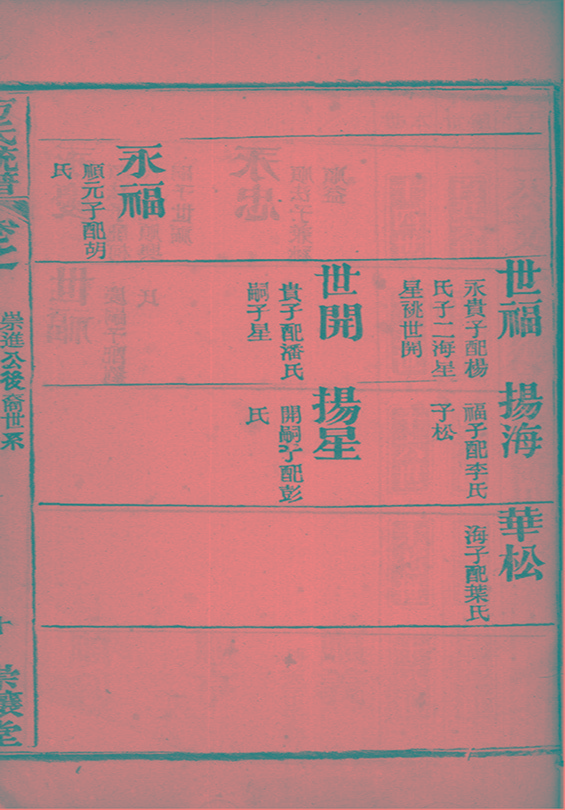 世福
永貴子配楊
氏子二海星
星祧世開
世開
貴子配潘氏
嗣子星
永福
順元子配胡
氏
揚海
福子配李氏
子松
揚星
開嗣子配彭
氏
華松
海子配葉氏
氏統譜
卷之
崇進公後裔世系
十
堂